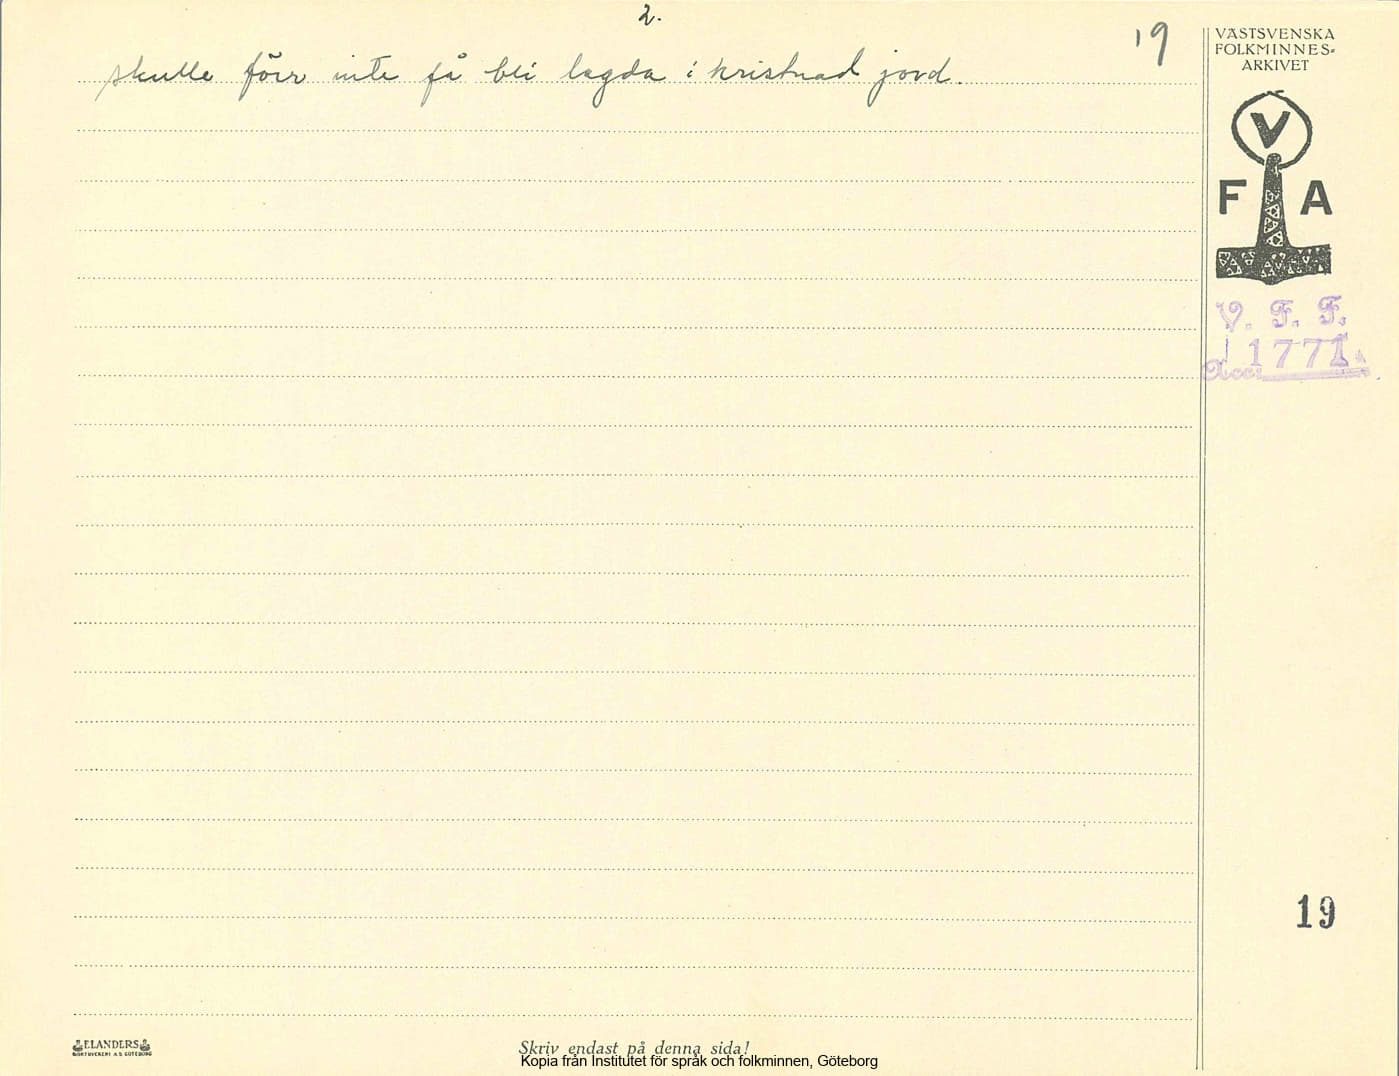 2.
19
skulle förr inte få bli lagda i kristnad jord.
VÄSTSVENSKA
FOLKMINNES-
ARKIVET
V
F A
V. F. F.
1771
Acc:
19
ELANDERS
BOKTRYCKERI A.B. GÖTEBORG
Skriv endast på denna sida!
Kopia från Institutet för språk och folkminnen, Göteborg